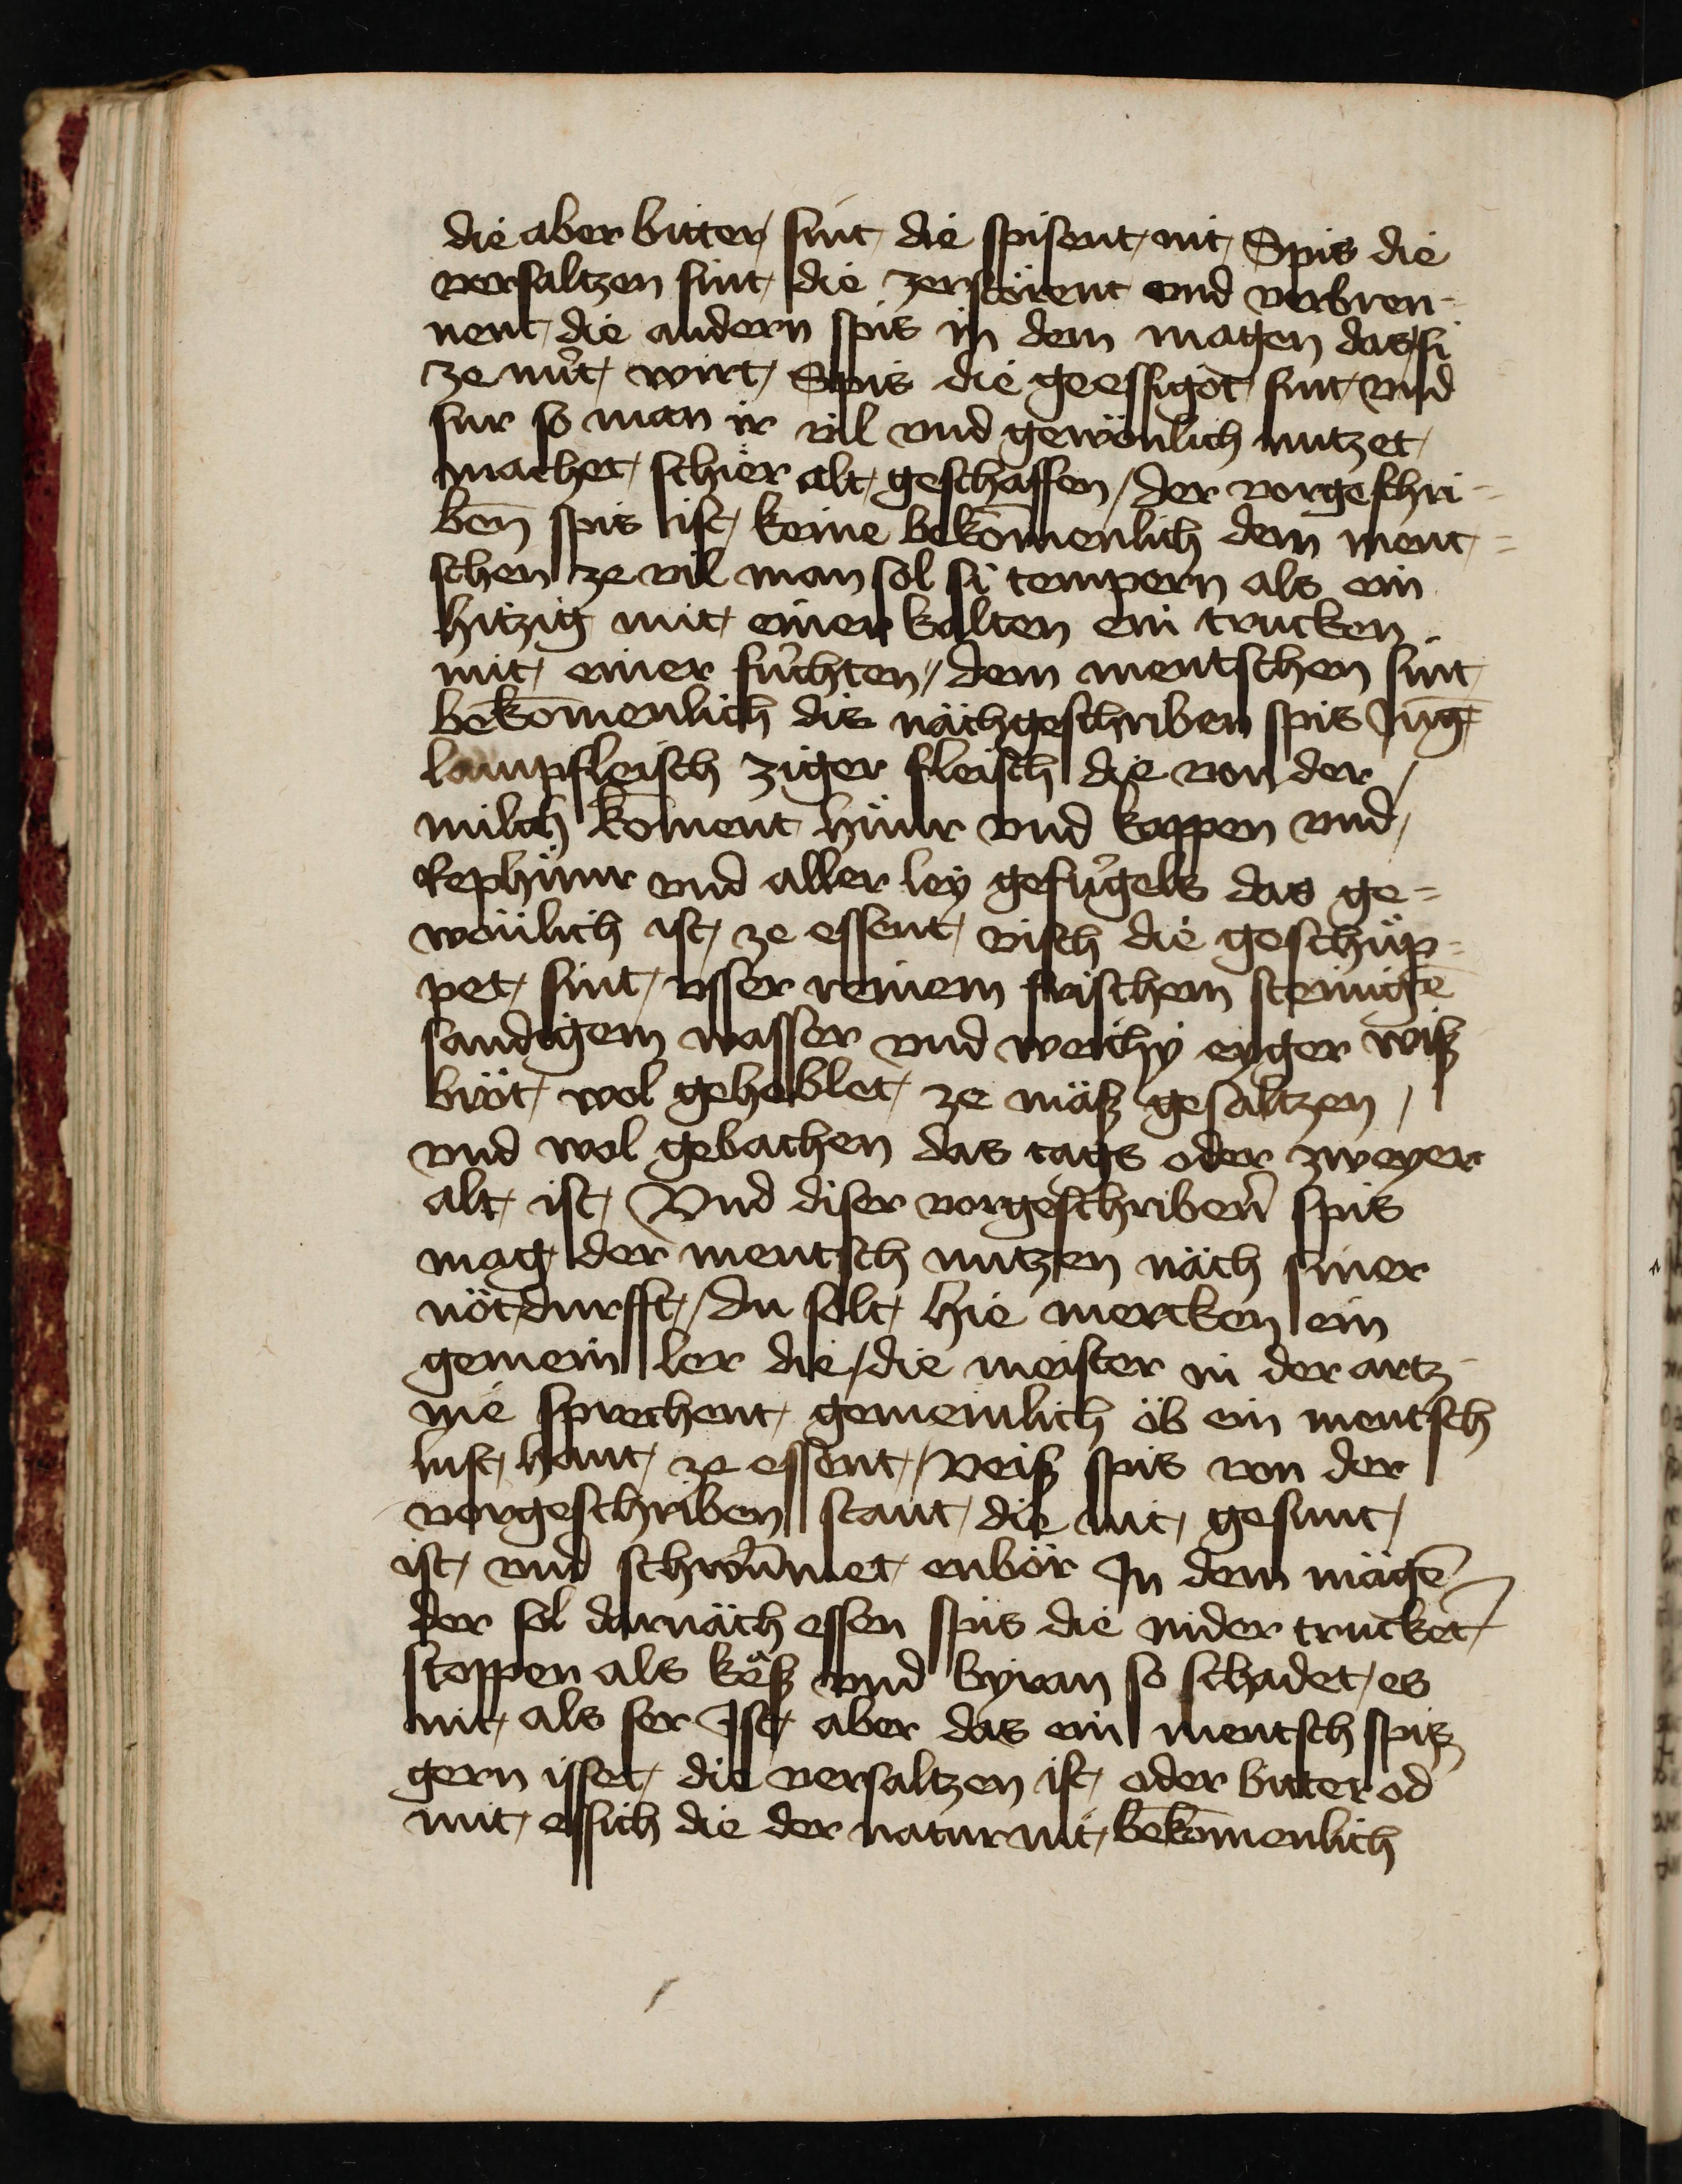 die aber bitter sint die spisent nit Spis die
versaltzen sint die zerstörent vnd verbren-
nent die andern spis in dem magen das si
ze nu̍t wirt Spis die geessigot sint vnd
sur so man ir vil vnd gewönlich nutzet
machet schier alt geschaffen / der vorgeschri=
ben̄ spis ist keine bekom̄enlich dem ment=
schen ze vil man sol si tempern als ein
hitzig mit einer kalten ein trucken
mit einer fu̍chten / dem mentschen sint
bekom̄enlich dis nächgeschriben spis Jūg
lampfleisch ziger fleisch die von der
milch kom̄ent hünr vnd kappen vnd
Rephünr vnd aller ley gefu̍gels das ge=
wonlich ist ze essent visch die geschüp=
pet sint vsser reinem frischem steinigē
sandigem wasser vnd weichy eyger wiß
bröt wol geheblet ze mäß gesaltzen /
vnd wol gebachen das tags oder zweyer
alt ist Vnd diser vorgeschriben̄ spis
mag der mentsch nutzen näch siner
nötdurfft / du solt hie mercken ein
gemein ler die / die meister in der artz-
nie sprechent gemeinlich öb ein mentsch
lust hant ze essent / veiß spis von der
vorgeschriben stant die nit gesunt
ist vnd schwim̄et enbör Jn dem mägē
der sol darnäch essen spis die nider trucket
stoppen als keß vnd byran so schadet es
nit als ser Jst aber das ein mentsch spiß
gern isset die versaltzen ist oder bitter od̄
mit essich die der natur nit bekom̄enlich